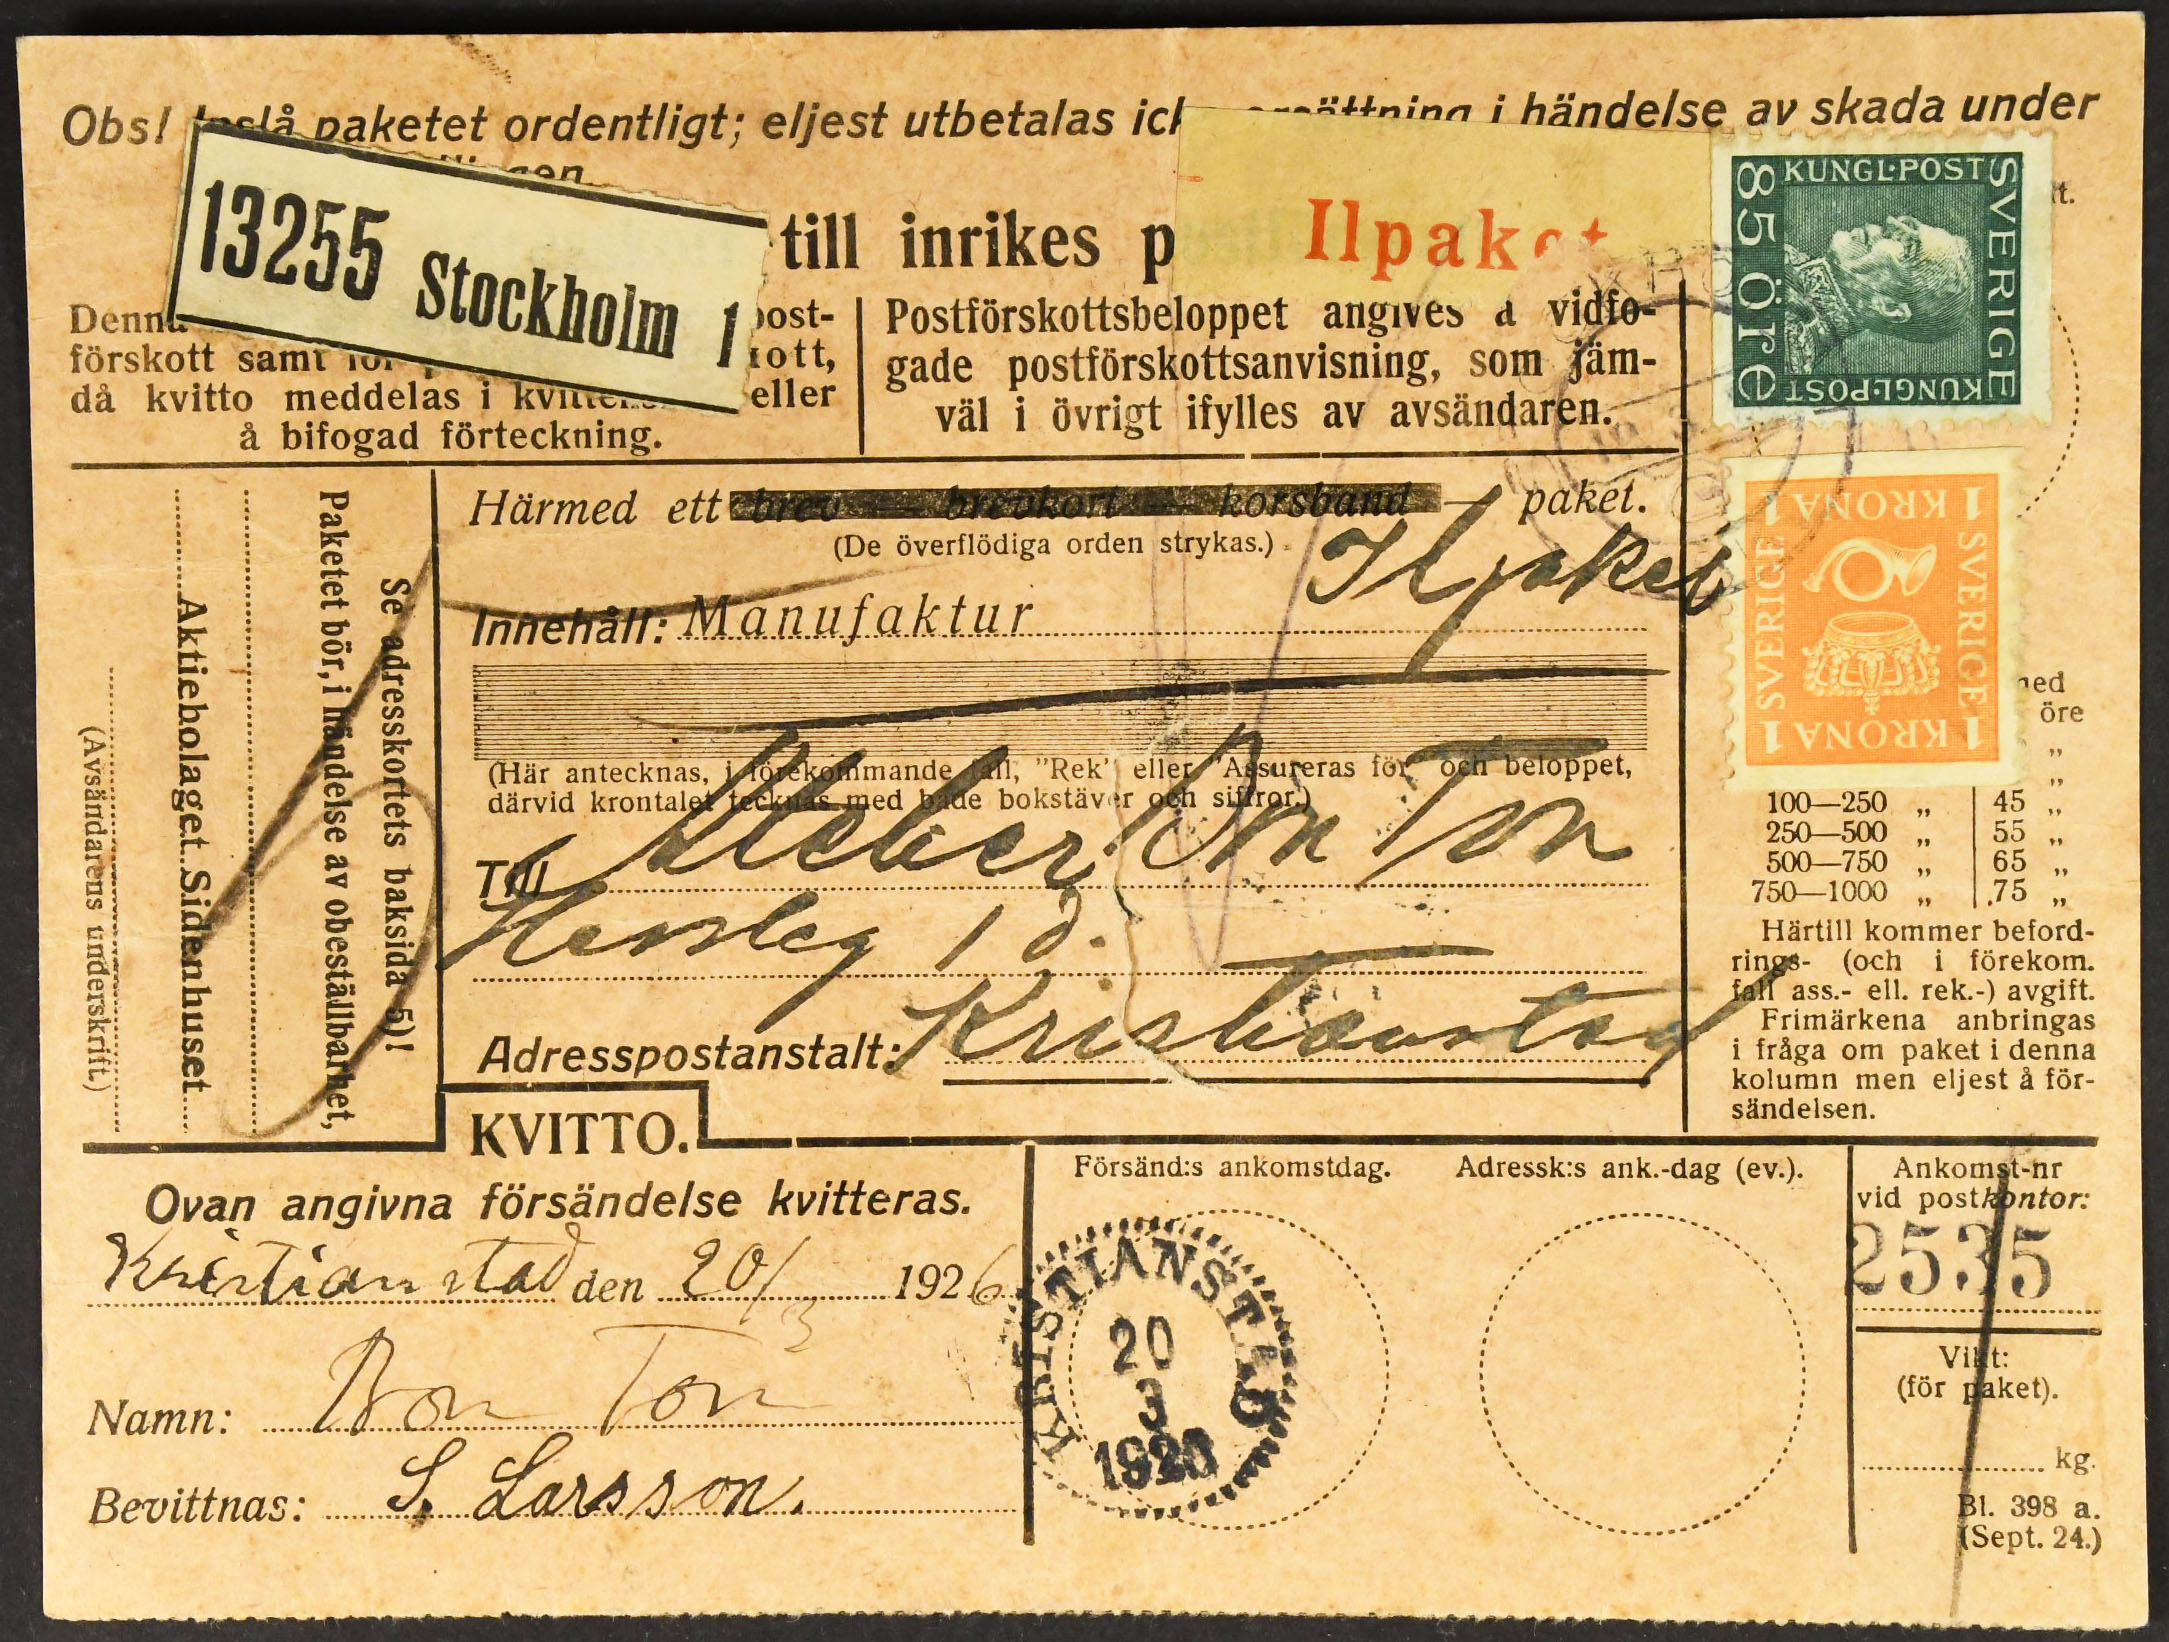 Obs! Inslå paketet ordentligt; eljest utbetalas ick ersättning i händelse av skada under
13255 Stockholm 1
till inrikes p
Ilpaket
SVERIGE
KUNGL·POST
85 öre
KUNGL·POST
Denna post-
förskott samt för kott,
då kvitto meddelas i eller
å bifogad förteckning.
Postförskottsbeloppet angives å vidfo-
gade postförskottsanvisning, som jäm-
väl i övrigt ifylles av avsändaren.
Se adresskortets baksida 5)!
Paketet bör, i händelse av obeställbarhet,
Aktiebolaget Sidenhuset
(Avsändarens underskrift.)
Härmed ett brev — brevkort — korsband — paket.
(De överflödiga orden strykas.)
Ilpaket
Innehåll: Manufaktur
(Här antecknas, i förekommande fall, "Rek" eller "Assureras för" och beloppet,
därvid krontalet tecknas med både bokstäver och siffror.)
Till Atelier Bon Ton
1 d.
Adresspostanstalt: Kristianstad
1 KRONA 1
SVERIGE
SVERIGE
1 KRONA 1
med
öre
„
„
100—250 „ 45 „
250—500 „ 55 „
500—750 „ 65 „
750—1000 „ 75 „
Härtill kommer beford-
rings- (och i förekom.
fall ass.- ell. rek.-) avgift.
Frimärkena anbringas
i fråga om paket i denna
kolumn men eljest å för-
sändelsen.
KVITTO.
Ovan angivna försändelse kvitteras.
Kristianstad den 20/3 1926
Namn: Bon Ton
Bevittnas: S. Larsson.
Försänd:s ankomstdag.
KRISTIANSTAD
20
3
1926
Adressk:s ank.-dag (ev.).
Ankomst-nr
vid postkontor:
2535
Vikt:
(för paket).
kg.
Bl. 398 a.
(Sept. 24.)